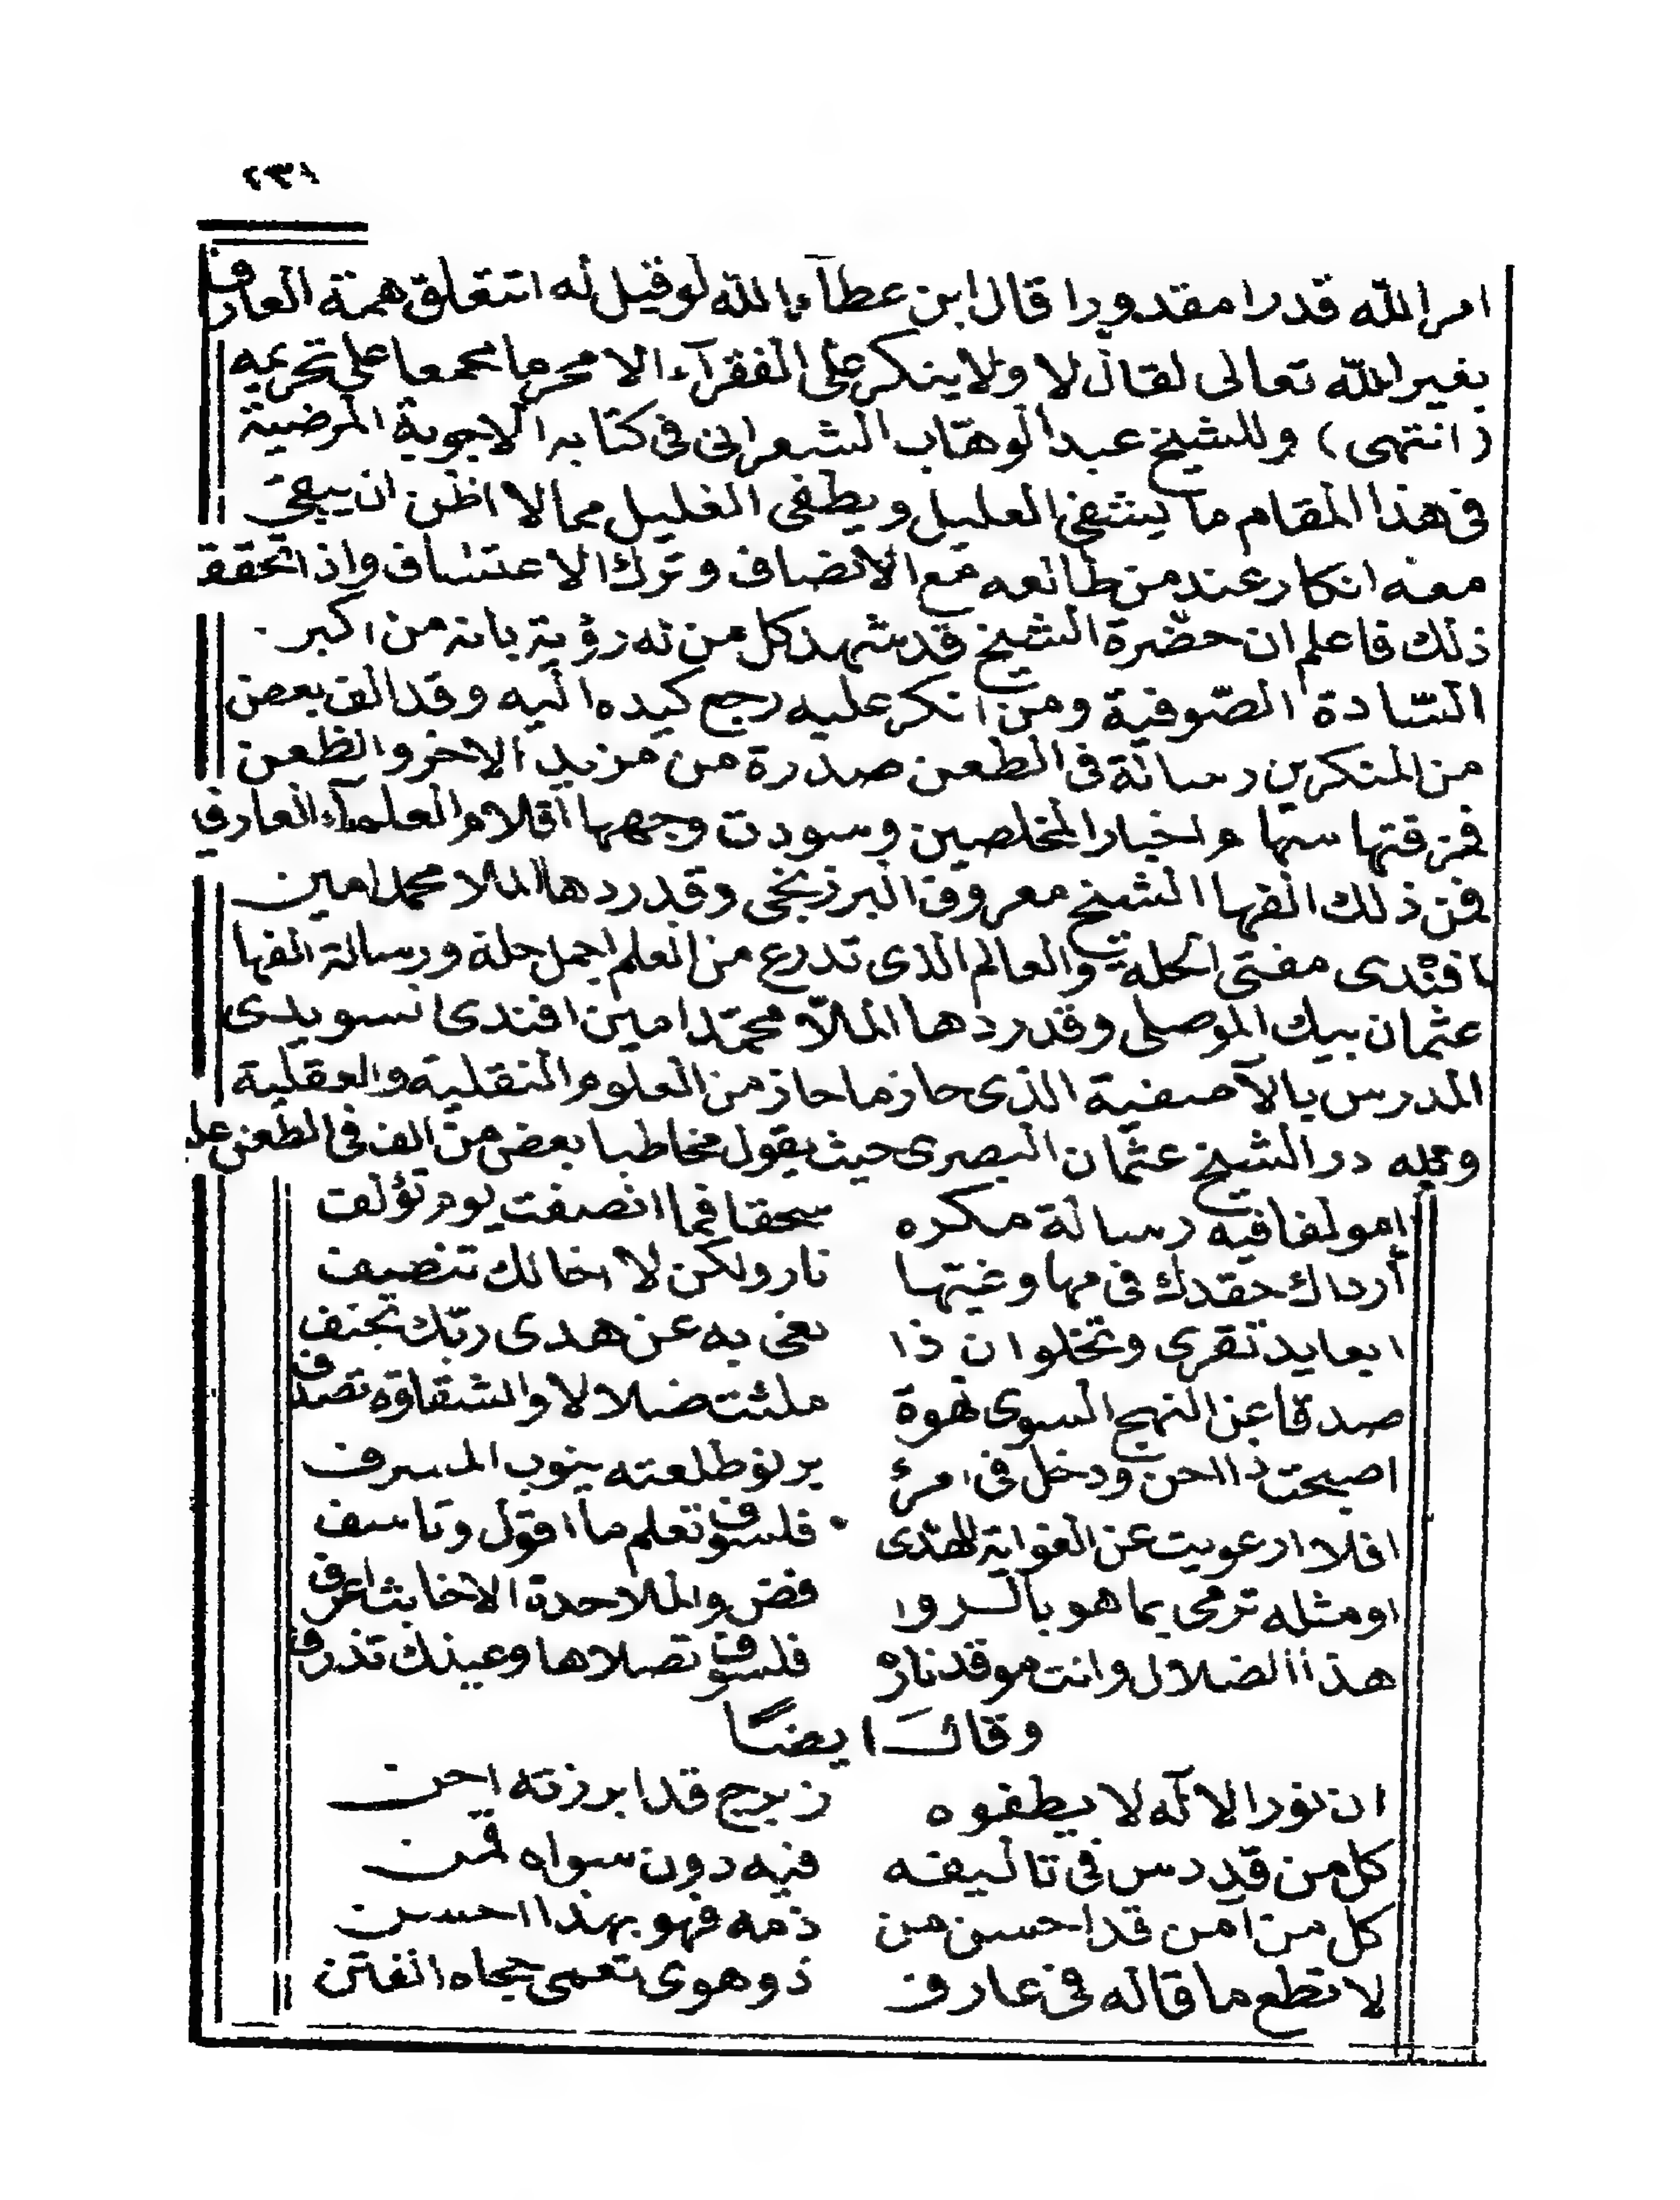 ٢٣١
امر الله قدرا مقدورا قال ابن عطآء الله لو قيل له اتتعلق همة العارف
بغير الله تعالى لقال لا ولا ينكر على الفقرآء الا محرما مجمعا على تحريمه
(انتهى) وللشيخ عبد الوهّاب الشعرانى فى كتابه الاجوبة المرضية
فى هذا المقام ما يشفى العليل ويطفى الغليل مما لا اظن ان يبقى
معه انكار عند من طالعه مع الانصاف وترك الاعتساف واذا تحقق
ذلك فاعلم ان حضرة الشيخ قد شهد كل من له رؤية بانه من اكبر
السّادة الصّوفية ومن انكر عليه رجع كيده اليه وقد الف بعض
من المنكرين رسالة فى الطعن صدرة من مزيد الاخر والظعن
فمزقتها سهاء واخبار المخلصين وسودت وجهها اقلام العلمآء العارفى
فمن ذلك الفها الشيخ معروف البرزنجى وقد ردها الملا محمد امين
افندى مفتى الحلة والعالم الذى تدرع من العلم اجمل حلة ورسالة الفها
عثمان بيك الموصلى وقد ردها الملاّ محمّد امين افندى السويدى
المدرس بالآصفية الذى حاز ما حاز من العلوم النقلية والعقلية
ولله در الشيخ عثمان البصرى حيث يقول مخاطبا بعض من الف فى الطعن عليه
امولفا فيه رسالة مكره سحقا فما انصفت يوم تؤلف
أرداك حقدك فى مها وغيتها نار ولكن لا اخالك تنصف
ايعابد تقرى وتخلو ان ذا بغى به عن هدى ربّك تجنف
صدقا عن النهج السوى لهوة ملئت ضلالا والشقاوة تصدف
اصبحت ذا احن ودخل فى امرئ برنو طلعته ينوب المسرف
افلا ارعويت عن الغواية للهدى فلسوف تعلم ما اقول وتاسف
او مثله ترمى بما هو بالروا فض والملاحدة الاخابث اعرف
هذا الضلال وانت موقد ناره فلسوف تصلاها وعينك تذرف
وقال ايضًا
ان نور الآله لا يطفوه زبرج قد ابرزته احن
كل من قد دس فى تاليفه فيه دون سواه قمن
كل من آمن قد احسن من ذمه فهو بهذا احسن
لا تطع ما قاله فى عارف ذو هوى تعمى حجاه الفتن